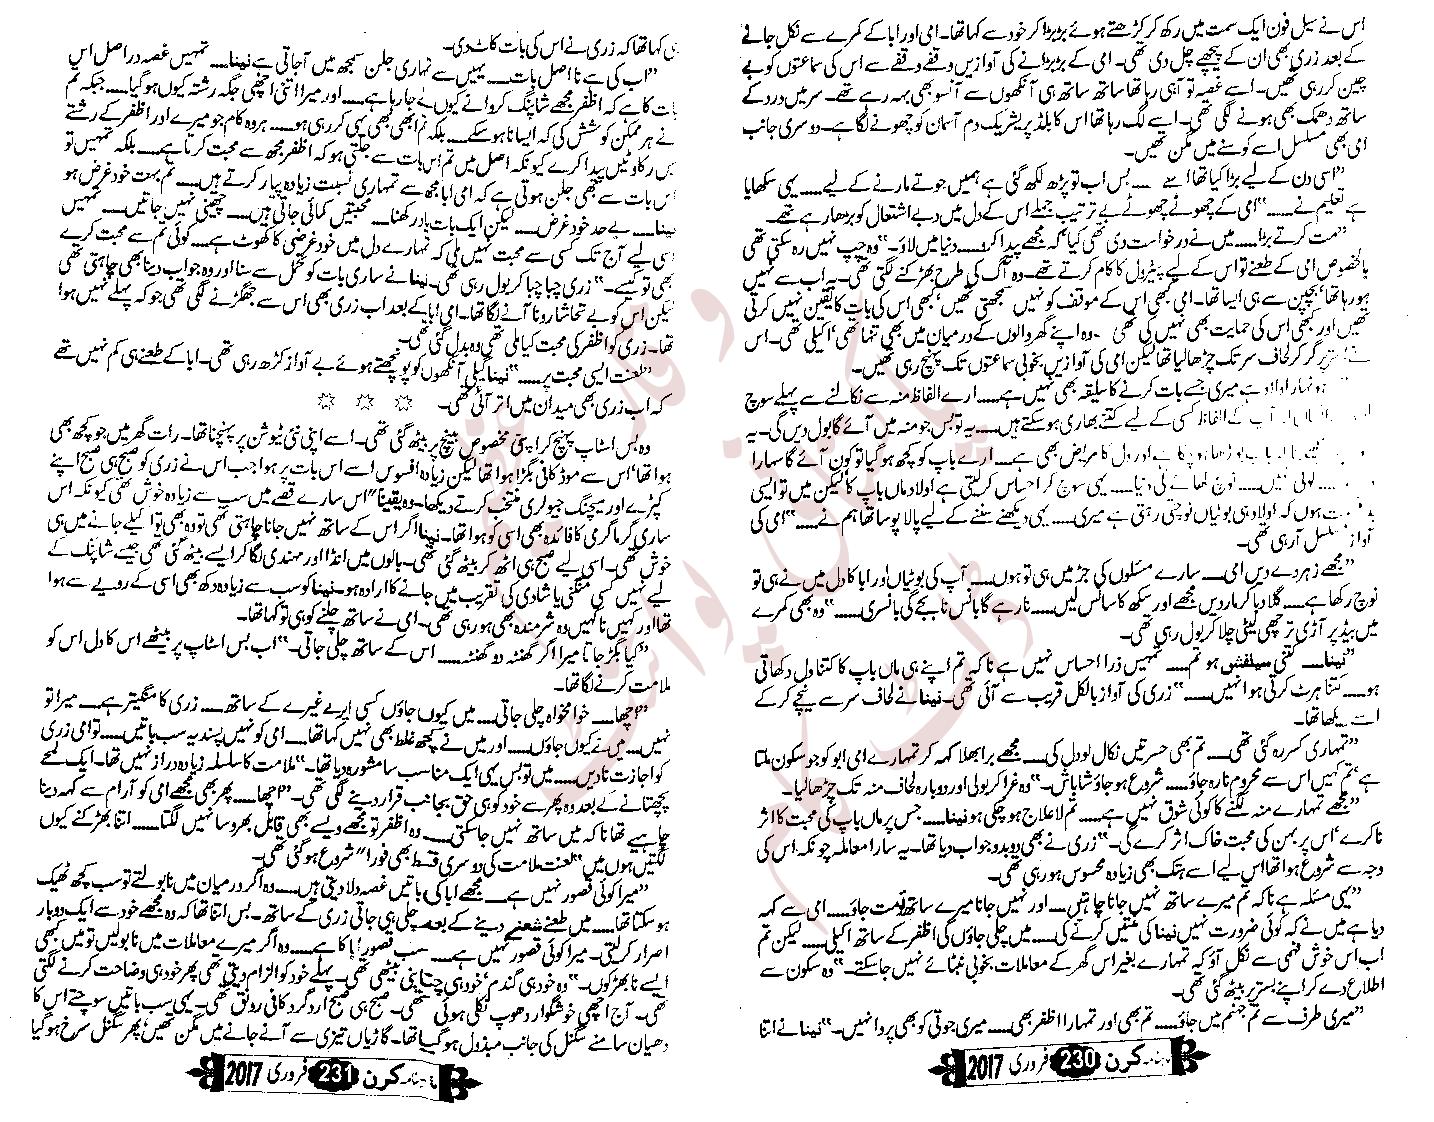 اس نے سیل فون ایک سمت میں رکھ کر کڑھتے ہوئے بڑبڑا کر خود سے کہا تھا۔ امی اور ابا کے کمرے سے نکل جانے
کے بعد زری بھی ان کے پیچھے چل دی تھی۔ امی کے بڑبڑانے کی آوازیں وقفے وقفے سے اس کی سماعتوں کو بے
چین کر رہی تھیں۔ اسے غصہ تو آہی رہا تھا ساتھ ساتھ ہی آنکھوں سے آنسو بھی بہہ رہے تھے۔ سر میں درد کے
ساتھ دھمک بھی ہونے لگی تھی۔ اسے لگ رہا تھا اس کا بلڈ پریشر یک دم آسمان کو چھونے لگا ہے۔ دوسری جانب
امی بھی مسلسل اسے کوسنے میں مگن تھیں۔
”اسی دن کے لیے بڑا کیا تھا اسے ___ بس اب تو پڑھ لکھ گئی ہے ہمیں جوتے مارنے کے لیے ___ یہی سکھایا
ہے تعلیم نے ___“ امی کے چھوٹے چھوٹے بے ترتیب جملے اس کے دل میں دبے اشتعال کو بڑھا رہے تھے۔
”مت کرتے بڑا ___ میں نے درخواست دی تھی کیا کہ مجھے پیدا کرو ___ دنیا میں لاؤ۔“ وہ چپ نہیں رہ سکتی تھی
بالخصوص امی کے طعنے تو اس کے لیے پیٹرول کا کام کرتے تھے۔ وہ آگ کی طرح بھڑکنے لگتی تھی۔ یہ اب سے نہیں
ہو رہا تھا‘ بچپن سے ہی ایسا تھا۔ امی کبھی اس کے موقف کو نہیں سمجھتی تھیں‘ کبھی اس کی بات کا یقین نہیں کرتی
تھیں اور کبھی اس کی حمایت بھی نہیں کی تھی۔ وہ اپنے گھر والوں کے درمیان میں بھی تنہا تھی‘ اکیلی تھی۔ اس
گر کر لحاف سر تک چڑھا لیا تھا لیکن امی کی آوازیں بخوبی سماعتوں تک پہنچ رہی تھیں۔
ہونہار اولاد ہے میری جسے بات کرنے کا سلیقہ بھی نہیں ہے ___ ارے الفاظ منہ سے نکالنے سے پہلے سوچ
آپ کے الفاظ کسی کے لیے کتنے بھاری ہو سکتے ہیں ___ یہ تو بس جو منہ میں آئے گا بول دیں گی۔ یہ
باپ بوڑھا ہو چکا ہے اور دل کا مریض بھی ہے ___ ارے باپ کو کچھ ہو گیا تو کون آئے گا سہارا
نہیں ___ نوچ کھائے گی دنیا ___ یہی سوچ کر احساس کر لیتی ہے اولاد ماں باپ کا لیکن میں تو ایسی
ہوں کہ اولاد ہی بوٹیاں نوچتی رہتی ہے میری ___ یہی دیکھنے سننے کے لیے پالا پوسا تھا ہم نے ___“ امی کی
آواز مسلسل آرہی تھی۔
”مجھے زہر دے دیں امی ___ سارے مسئلوں کی جڑ میں ہی تو ہوں ___ آپ کی بوٹیاں اور ابا کا دل میں نے ہی تو
نوچ رکھا ہے ___ گلا دبا کر مار دیں مجھے اور سکھ کا سانس لیں ___ نا رہے گا بانس نا بجے گی بانسری ___“ وہ بھی کمرے
میں بیڈ پر آڑی ترچھی لیٹی چلا کر بول رہی تھی۔
”نینا ___ کتنی سیلفش ہو تم ___ تمہیں ذرا احساس نہیں ہے نا کہ تم اپنے ہی ماں باپ کا کتنا دل دکھاتی
ہو ___ کتنا ہرٹ کرتی ہو انہیں ___“ زری کی آواز بالکل قریب سے آئی تھی۔ نینا نے لحاف سر سے نیچے کر کے
اسے دیکھا تھا۔
”تمہاری کسر رہ گئی تھی ___ تم بھی حسرتیں نکال لو دل کی ___ مجھے برا بھلا کہہ کر تمہارے امی ابو کو جو سکون ملتا
ہے‘ تم کہیں اس سے محروم نا رہ جاؤ ___ شروع ہو جاؤ شاباش۔“ وہ غرا کر بولی اور دوبارہ لحاف منہ تک چڑھا لیا۔
”مجھے تمہارے منہ لگنے کا کوئی شوق نہیں ہے ___ تم لاعلاج ہو چکی ہو نینا ___ جس پر ماں باپ کی محبت کا اثر
نا کرے‘ اس پر بہن کی محبت خاک اثر کرے گی۔“ زری نے بھی دوبدو جواب دیا تھا۔ یہ سارا معاملہ چونکہ اس کی
وجہ سے شروع ہوا تھا اس لیے اسے ہتک بھی زیادہ محسوس ہو رہی تھی۔
”یہی مسئلہ ہے نا کہ تم میرے ساتھ نہیں جانا چاہتیں ___ اور نہیں جانا میرے ساتھ تو مت جاؤ ___ امی سے کہہ
دیا ہے میں نے کہ کوئی ضرورت نہیں نینا کی منتیں کرنے کی ___ میں چلی جاؤں گی اظفر کے ساتھ اکیلی ___ لیکن تم
اب اس خوش فہمی سے نکل آؤ کہ تمہارے بغیر اس گھر کے معاملات بخوبی نمٹائے نہیں جا سکتے۔“ وہ سکون سے
اطلاع دے کر اپنے بستر پر بیٹھ گئی تھی۔
”میری طرف سے تم جہنم میں جاؤ ___ تم بھی اور تمہارا اظفر بھی ___ میری جوتی کو بھی پروا نہیں۔“ نینا نے اتنا
ماہنامہ کرن 230 فروری 2017
ہی کہا تھا کہ زری نے اس کی بات کاٹ دی۔
”اب کی ہے نا اصل بات ___ یہیں سے تمہاری جلن سمجھ میں آجاتی ہے نینا ___ تمہیں غصہ دراصل اس
بات کا ہے کہ اظفر مجھے شاپنگ کروانے کیوں لے جا رہا ہے ___ اور میرا اتنی اچھی جگہ رشتہ کیوں ہو گیا ___ جبکہ تم
نے ہر ممکن کوشش کی کہ ایسا نا ہو سکے ___ بلکہ تم ابھی بھی یہی کر رہی ہو ___ ہر وہ کام جو میرے اور اظفر کے رشتے
میں رکاوٹیں پیدا کرے کیونکہ اصل میں تم اس بات سے جلتی ہو کہ اظفر مجھ سے محبت کرتا ہے ___ بلکہ تمہیں تو
اس بات سے بھی جلن ہوتی ہے کہ امی ابا مجھ سے تمہاری نسبت زیادہ پیار کرتے ہیں ___ تم بہت خود غرض ہو
نینا ___ بے حد خود غرض ___ لیکن ایک بات یاد رکھنا ___ محبتیں کمائی جاتی ہیں ___ چھینی نہیں جاتیں ___ تمہیں
اسی لیے آج تک کسی سے محبت نہیں ملی کہ تمہارے دل میں خود غرضی کا کھوٹ ہے ___ کوئی تم سے محبت کرے
بھی تو کیسے۔“ زری چبا چبا کر بول رہی تھی۔ نینا نے ساری بات کو تحمل سے سنا اور وہ جواب دینا بھی چاہتی تھی
لیکن اس کو بے تحاشا رونا آنے لگا تھا۔ امی ابا کے بعد اب زری بھی اس سے جھگڑنے لگی تھی جو کہ پہلے نہیں ہوا
تھا۔ زری کو اظفر کی محبت کیا ملی تھی وہ بدل گئی تھی۔
”لعنت ایسی محبت پر ___“ نینا گیلی آنکھوں کو پونچھتے ہوئے بے آواز کڑھ رہی تھی۔ ابا کے طعنے ہی کم نہیں تھے
کہ اب زری بھی میدان میں اتر آئی تھی۔
☼ ☼ ☼
وہ بس اسٹاپ پہنچ کر اپنی مخصوص بینچ پر بیٹھ گئی تھی۔ اسے اپنی نئی ٹیوشن پر پہنچنا تھا۔ رات گھر میں جو کچھ بھی
ہوا تھا‘ اس سے موڈ کافی بگڑا ہوا تھا لیکن زیادہ افسوس اسے اس بات پر ہوا جب اس نے زری کو صبح ہی صبح اپنے
کپڑے اور میچنگ جیولری منتخب کرتے دیکھا۔ وہ یقیناً اس سارے قصے میں سب سے زیادہ خوش تھی کیونکہ اس
ساری گرما گرمی کا فائدہ بھی اسی کو ہوا تھا۔ نینا اگر اس کے ساتھ نہیں جانا چاہتی تھی تو وہ بھی تو اکیلے جانے میں ہی
خوش تھی۔ اسی لیے صبح ہی اٹھ کر بیٹھ گئی تھی۔ بالوں میں انڈا اور مہندی لگا کر ایسے بیٹھ گئی تھی جیسے شاپنگ کے
لیے نہیں کسی منگنی یا شادی کی تقریب میں جانے کا ارادہ ہو۔ نینا کو سب سے زیادہ دکھ بھی اسی کے رویے سے ہوا
تھا اور کہیں نا کہیں وہ شرمندہ بھی ہو رہی تھی۔ امی نے ساتھ چلنے کو ہی تو کہا تھا۔
”کیا بگڑ جاتا میرا اگر گھنٹہ دو گھنٹہ ___ اس کے ساتھ چلی جاتی۔“ اب بس اسٹاپ پر بیٹھے اس کا دل اس کو
ملامت کرنے لگا تھا۔
”اچھا ___ خوامخواہ چلی جاتی ___ میں کیوں جاؤں کسی ایرے غیرے کے ساتھ ___ زری کا منگیتر ہے ___ میرا تو
نہیں ___ میں نے کیوں جاؤں ___ اور میں نے کچھ غلط بھی نہیں کہا تھا ___ امی کو نہیں پسند یہ سب باتیں ___ تو امی زری
کو اجازت نا دیں ___ میں تو بس یہی ایک مناسب سا مشورہ دیا تھا۔“ ملامت کا سلسلہ زیادہ دراز نہیں تھا۔ ایک لمحے
پچھتانے کے بعد وہ پھر سے خود کو ہی حق بجانب قرار دینے لگی تھی۔ ”اچھا ___ پھر بھی مجھے امی کو آرام سے کہہ دینا
چاہیے تھا نا کہ میں ساتھ نہیں جا سکتی ___ وہ اظفر تو مجھے ویسے بھی قابل بھروسا نہیں لگتا ___ اتنا بھڑکنے کیوں
لگتیں ہوں میں“ لعنت ملامت کی دوسری قسط بھی فوراً شروع ہو گئی تھی۔
”میرا کوئی قصور نہیں ہے ___ مجھے ابا کی باتیں غصہ دلا دیتی ہیں ___ وہ اگر درمیان میں نا بولتے تو سب کچھ ٹھیک
ہو سکتا تھا ___ میں طعنے شعنے دینے کے بعد چلی ہی جاتی زری کے ساتھ۔ بس اتنا تھا کہ وہ مجھے خود سے ایک دو بار
اصرار کر لیتی۔ میرا کوئی قصور نہیں ہے ___ سب قصور ابا کا ہے ___ وہ اگر میرے معاملات میں نا بولیں تو میں بھی
ایسے نا بھڑکوں۔“ وہ خود ہی گندم‘ خود ہی چنا بنی بیٹھی تھی۔ پہلے خود کو الزام دیتی تھی پھر خود ہی وضاحت کرنے لگتی
تھی۔ آج اچھی خوشگوار دھوپ نکلی ہوئی تھی۔ صبح ہی صبح ارد گرد کافی رونق تھی۔ یہی سب باتیں سوچتے اس کا
دھیان سامنے سگنل کی جانب مبذول ہو گیا تھا۔ گاڑیاں تیزی سے آنے جانے میں مگن تھیں‘ پھر سگنل سرخ ہو گیا
ماہنامہ کرن 231 فروری 2017